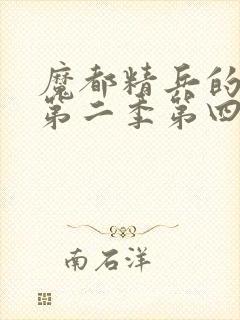 魔都精兵的
第二季第四
南石洋